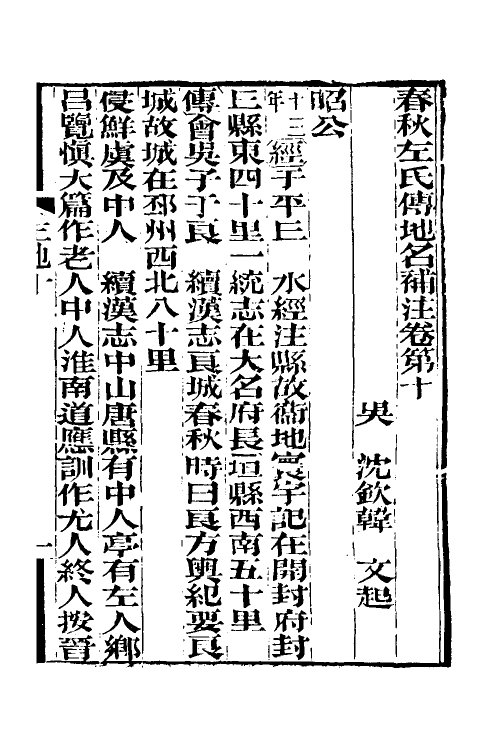 春秋左氏傳地名補注卷第十
吳 沈欽韓 文起
昭公
十三年經于平丘 水經注縣故衞地寰宇記在開封府封
丘縣東四十里一統志在大名府長垣縣西南五十里
傳會吳子于良 續漢志良城春秋時曰良方輿紀要良
城故城在邳州西北八十里
侵鮮虞及中人 續漢志中山唐縣有中人亭有左人鄉
呂覽愼大篇作老人中人淮南道應訓作尤人終人按晉
地十
一